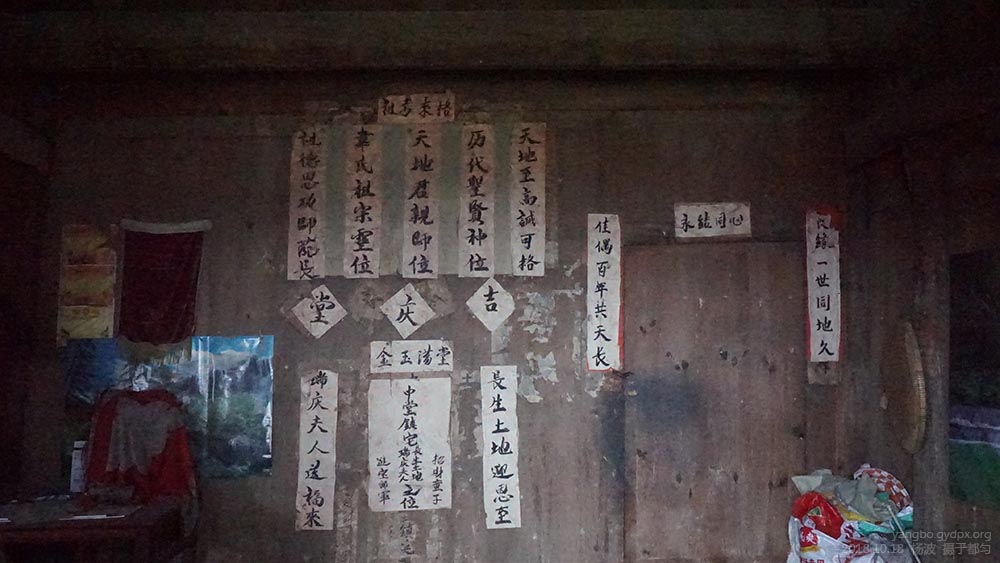 祖考来格
天地至高誠可格
历代聖賢神位
天地君親師位
韋氏祖宗靈位
祖德恩功師蔭長
吉庆堂
金玉滿堂
長生土地迎恩至
招財童子
中堂鎮宅長生土地瑞庆夫人之位
進宝郎军
瑞庆夫人送福來
永結同心
佳偶百年共天长
良緣一世同地久
yangbo.gydpx.org
2018.10.18 杨波 摄于都匀